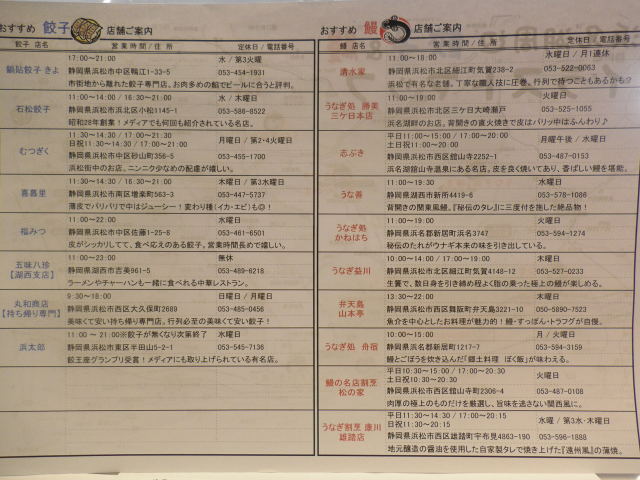 おすすめ 餃子 店舗ご案内
餃子 店名 営業時間/住所 定休日/電話番号
鍋貼餃子 きよ
17:00～21:00 水/第3火曜
静岡県浜松市中区鴨江1-33-5 053-454-1931
市街地から離れた餃子専門店。お肉多めの餡でビールに合うと評判。
石松餃子
11:00～14:00/16:30～21:00 水/木曜日
静岡県浜松市浜北区小松1145-1 053-586-8522
昭和28年創業!メディアでも何回も紹介されている名店。
むつぎく
11:30～14:30/17:00～21:30
日祝11:30～14:30/17:00～21:00 月曜日/第2・4火曜日
静岡県浜松市中区砂山町356-5 053-455-1700
浜松街中のお店。ニンニク少なめの配慮が嬉しい。
喜慕里
11:30～14:30/16:30～21:00 木曜日/第3水曜日
静岡県浜松市南区増楽町563-3 053-447-5737
薄皮でパリパリで中はジューシー!変わり種(イカ・エビ)も◎!
福みつ
11:00～22:00 水曜日
静岡県浜松市中区佐藤1-25-8 053-461-6501
皮がシッカリしてて、食べ応えのある餃子。営業時間長めで嬉しい。
五味八珍
【湖西支店】
11:00～23:00 無休
静岡県湖西市吉美961-5 053-489-6218
ラーメンやチャーハンも一緒に食べれる中華レストラン。
丸和商店
【持ち帰り専門】
9:30～18:00 日曜日/月曜日
静岡県浜松市西区大久保町2689 053-485-0456
美味くて安い持ち帰り専門店。行列必至の美味くて安い餃子!
浜太郎
11:00～21:00※餃子が無くなり次第終了 水曜日
静岡県浜松市東区半田山5-2-1 053-545-7136
餃王座グランプリ受賞!メディアにも取り上げられている有名店。
おすすめ 鰻 店舗ご案内
鰻 店名 営業時間/住所 定休日/電話番号
清水家
11:00～18:00 水曜日/月1連休
静岡県浜松市北区細江町気賀238-2 053-522-0063
浜松で有名な老舗。丁寧な職人技に圧巻。行列で待つこともあるかも?
うなぎ処 勝美
三ケ日本店
11:00～19:00 火曜日
静岡県浜松市北区三ケ日大崎瀬戸 053-525-1055
浜名湖畔のお店。背開きの直火焼きで皮はパリッ中はふんわり♪
志ぶき
平日11:00～15:00/17:00～20:00
土日祝11:00～20:00 月曜午後/水曜日
静岡県浜松市西区舘山寺2252-1 053-487-0153
浜名湖舘山寺温泉にある名店。皮を良く焼いてあり、香ばしい鰻を堪能。
うな善
11:00～19:30 水曜日
静岡県湖西市新所4419-6 053-578-1086
背開きの関東風鰻。『秘伝のタレ』に三度付を施した絶品物!
うなぎ処
かねはち
11:00～19:00 火曜日
静岡県浜名郡新居町浜名3747 053-594-1274
秘伝のたれがウナギ本来の味を引き出している。
うなぎ益川
10:00～14:00/17:00～19:00 火曜日
静岡県浜松市北区細江町気賀4148-12 053-527-0233
生簀で、数日身を引き締め程よく脂の乗った極上の鰻が楽しめる。
弁天島
山本亭
13:30～22:00 火曜日
静岡県浜松市西区舞阪町弁天島3221-10 050-5890-7523
魚介を中心としたお料理が魅力的!鰻・すっぽん・トラフグが自慢。
うなぎ処 舟宿
10:00～15:00 月/火曜日
静岡県浜名郡新居町1217-7 053-594-3159
鰻とごぼうを炊き込んだ「郷土料理 ぼく飯」が味わえる。
鰻の名店割烹
松の家
平日10:30～15:00/17:00～20:30
土日祝10:30～20:30 火曜日
静岡県浜松市西区舘山寺町2306-4 053-487-0108
肉厚の極上のものだけを厳選し、旨味を逃さない関西風に。
うなぎ割烹 康川
雄踏店
平日11:30～14:30/17:00～20:15
日祝11:30～20:15 水曜/第3水・木曜日
静岡県浜松市西区雄踏町宇布見4863-190 053-596-1888
地元醸造の醤油を使用した自家製タレで焼き上げた『遠州風』の蒲焼。